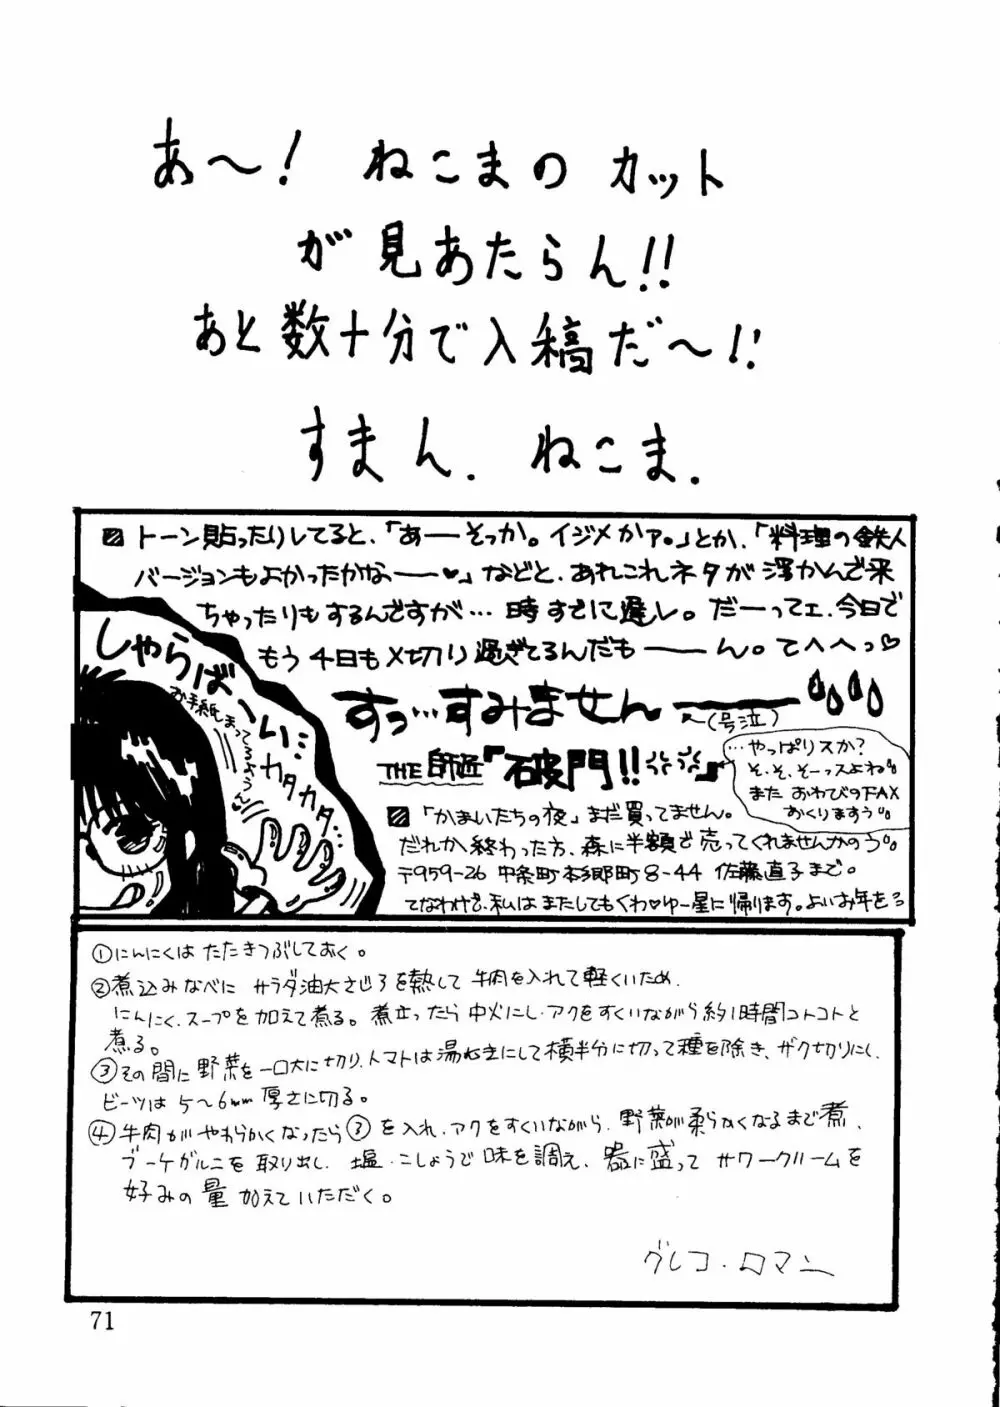 あ～! ねこまの カット
が見あたらん!!
あと数十分で入稿だ～!!
すまん. ねこま.
トーン貼ったりしてると、「あーそっか。イジメかァ。」とか、「料理の鉄人
バージョンもよかったかなー♥」などと、あれこれネタが浮かんで来
ちゃったりもするんですが…時すでに遅し。だーってェ、今日で
もう4日も〆切り過ぎてるんだもーーん。てへへっ♡
すっ…すみませんーー
へ(号泣)
THE師匠『破門!!』
…やっぱりスか?
そ、そ、そーっスよね
また おわびのFAX
おくりますぅ
しゃらばへい…
お手紙まってるよぅん
カタカタ…
「かまいたちの夜」まだ買ってません。
だれか終わった方、森に半額で売ってくれませんかのぅ
〒959-26 中条町本郷町8-44 佐藤直子まで。
てなわけで、私はまたしてもくわ♥ゆー星に帰ります。よいお年を
①にんにくは たたきつぶしておく。
②煮込みなべに サラダ油大さじ3を熱して 牛肉を入れて軽くいため、
にんにく、スープを加えて煮る。煮立ったら中火にし、アクをすくいながら約1時間コトコトと
煮る。
③その間に野菜を一口大に切り、トマトは湯むきにして横半分に切って種を除き、ザク切りにし、
ビーツは5～6mm厚さに切る。
④牛肉がやわらかくなったら③を入れ、アクをすくいながら、野菜が柔らかくなるまで煮、
ブーケガルニを取り出し、塩、こしょうで味を調え、器に盛って サワークリームを
好みの量 加えていただく。
グレコ・ロマン
71